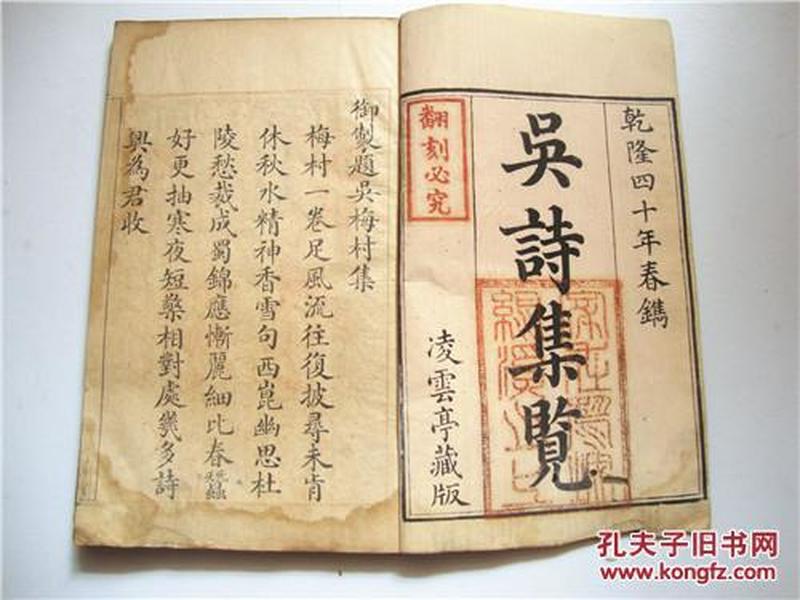 乾隆四十年春鐫
吳詩集覽
凌雲亭藏版
翻刻必究
御製題吳梅村集
梅村一卷足風流往復披尋未肯
休秋水精神香雪句西崑幽思杜
陵愁裁成蜀錦應慚麗細比春蠶
好更抽寒夜短檠相對處幾多詩
興為君收
孔夫子旧书网
www.kongfz.com